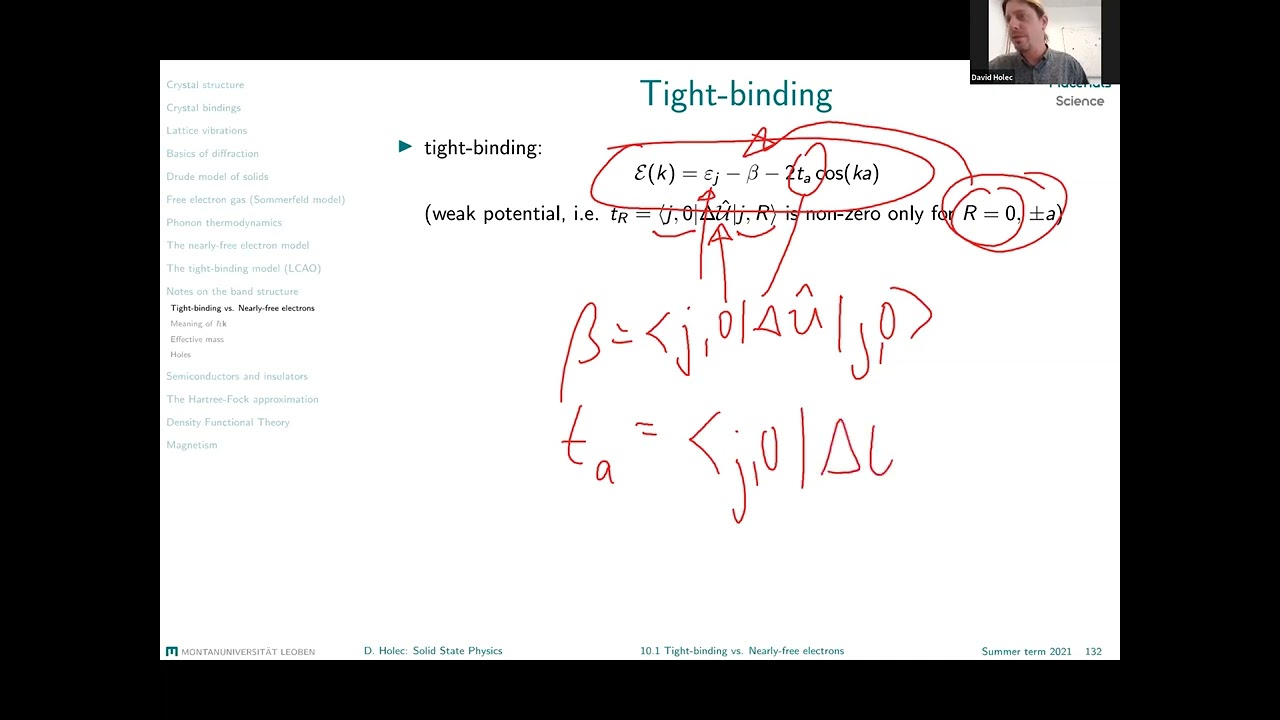 David Holec
Materials
Science
Crystal structure
Crystal bindings
Lattice vibrations
Basics of diffraction
Drude model of solids
Free electron gas (Sommerfeld model)
Phonon thermodynamics
The nearly-free electron model
The tight-binding model (LCAO)
Notes on the band structure
Tight-binding vs. Nearly-free electrons
Meaning of ℏk
Effective mass
Holes
Semiconductors and insulators
The Hartree-Fock approximation
Density Functional Theory
Magnetism
Tight-binding
▶ tight-binding:
ℰ(k) = εⱼ − β − 2tₐ cos(ka)
(weak potential, i.e. t_R = ⟨j, 0|Δ𝒰̂|j, R⟩ is non-zero only for R = 0, ±a)
β = <j,0|Δû|j,0>
tₐ = <j,0|Δ
MONTANUNIVERSITÄT LEOBEN
D. Holec: Solid State Physics
10.1 Tight-binding vs. Nearly-free electrons
Summer term 2021 132